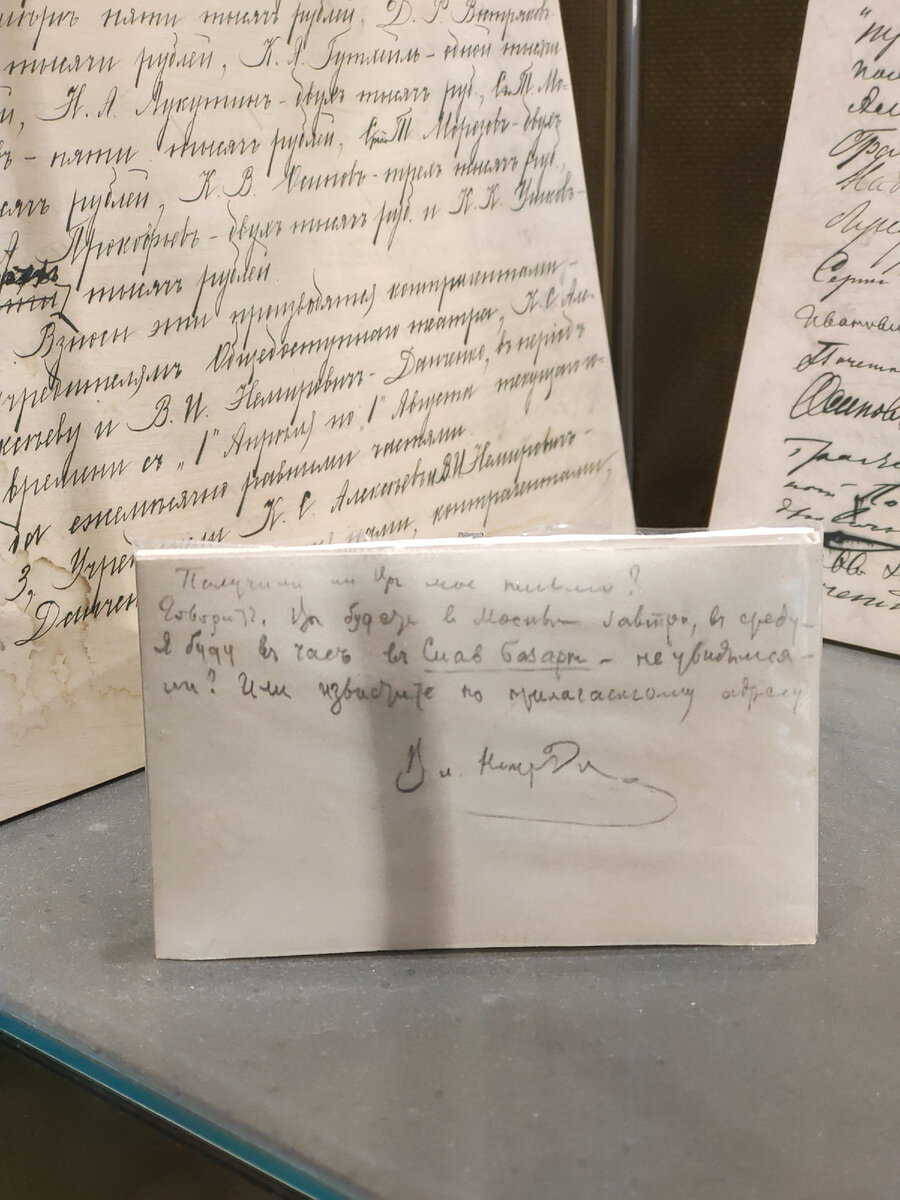 пяти тысячъ рублей, Д. Р. Востряковъ
тысячи рублей, К. А. Гутхейль - одной тысячи
Н. А. Лукутинъ - двухъ тысячъ руб., С. Т. Мо-
въ - пяти тысячъ рублей, Серг. Т. Морозовъ - двухъ
сячъ рублей, К. В. Осиповъ - трехъ тысячъ руб.,
Прокофьевъ - двухъ тысячъ руб. и К. К. Ушковъ -
тысячъ рублей.
Взносы эти производятся контрагентами -
учредителямъ Общедоступнаго театра, К. С. Але-
ксѣеву и В. И. Немировичъ-Данченко, въ періодъ
времени съ „1" Апрѣля по „1" Августа текущаго го-
да ежемѣсячно равными частями.
3, К. С. Алексѣевъ и В. И. Немировичъ-
Данчен контрагентами,
Сергѣй
Почетн
Осиповъ
Получили ли Вы мое письмо?
Говорятъ, Вы будете в Москвѣ завтра, въ среду.
Я буду въ часъ въ Слав Базарѣ - не увидимся-
ли? Или извѣстите по прилагаемому адресу
Вл. НемирДч